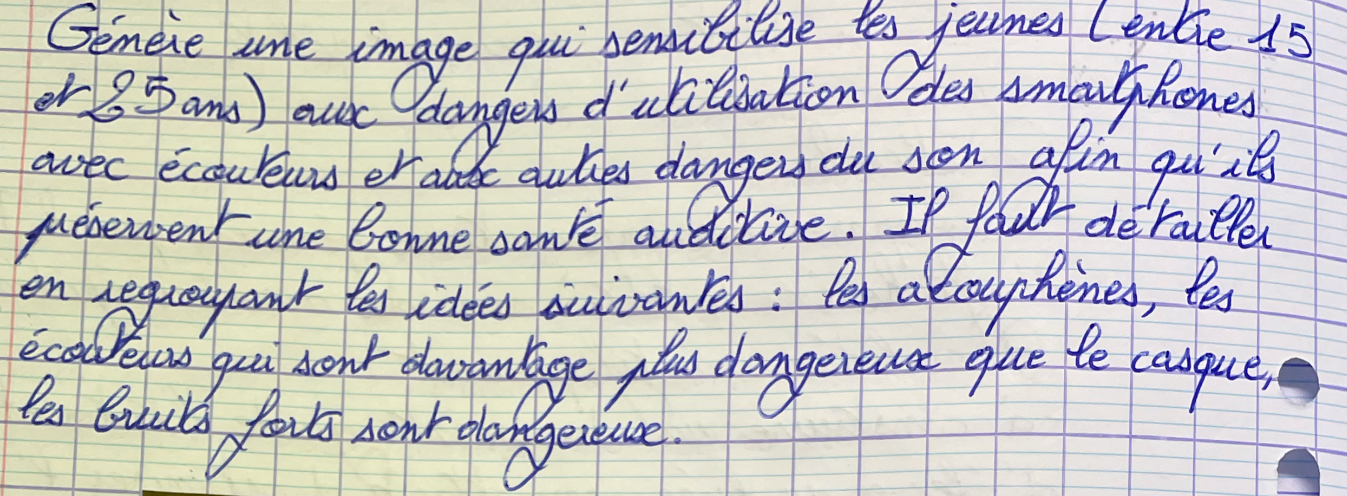 Génère une image qui sensibilise les jeunes (entre 15
et 25 ans) aux dangers d'utilisation des smartphones
avec écouteurs et aux autres dangers du son afin qu'ils
préservent une bonne santé auditive. Il faut détailler
en regroupant les idées suivantes : les acouphènes, les
écouteurs qui sont davantage plus dangereux que le casque,
les bruits forts sont dangereux.